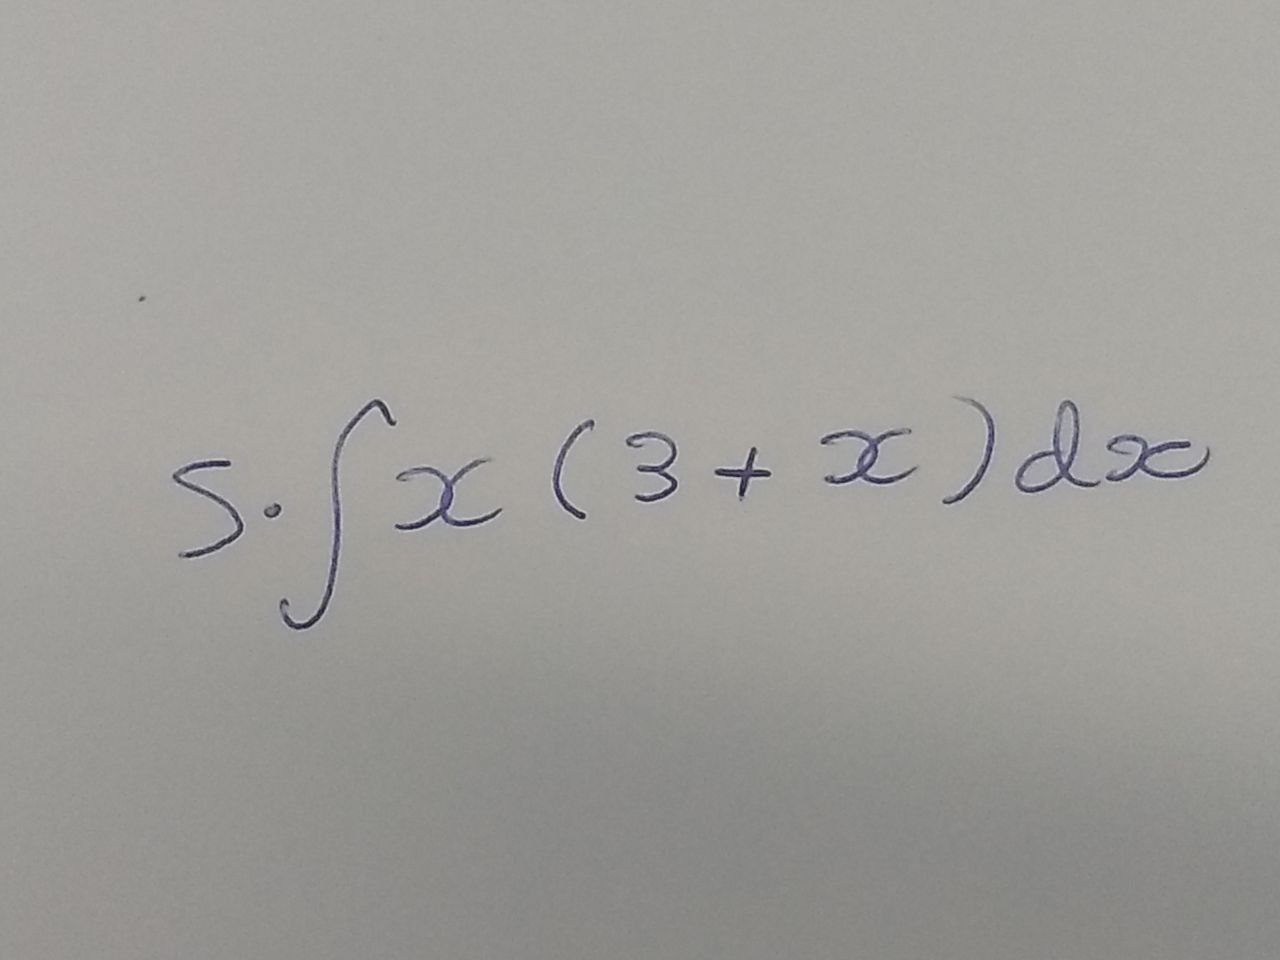 5. ∫x(3+x)dx